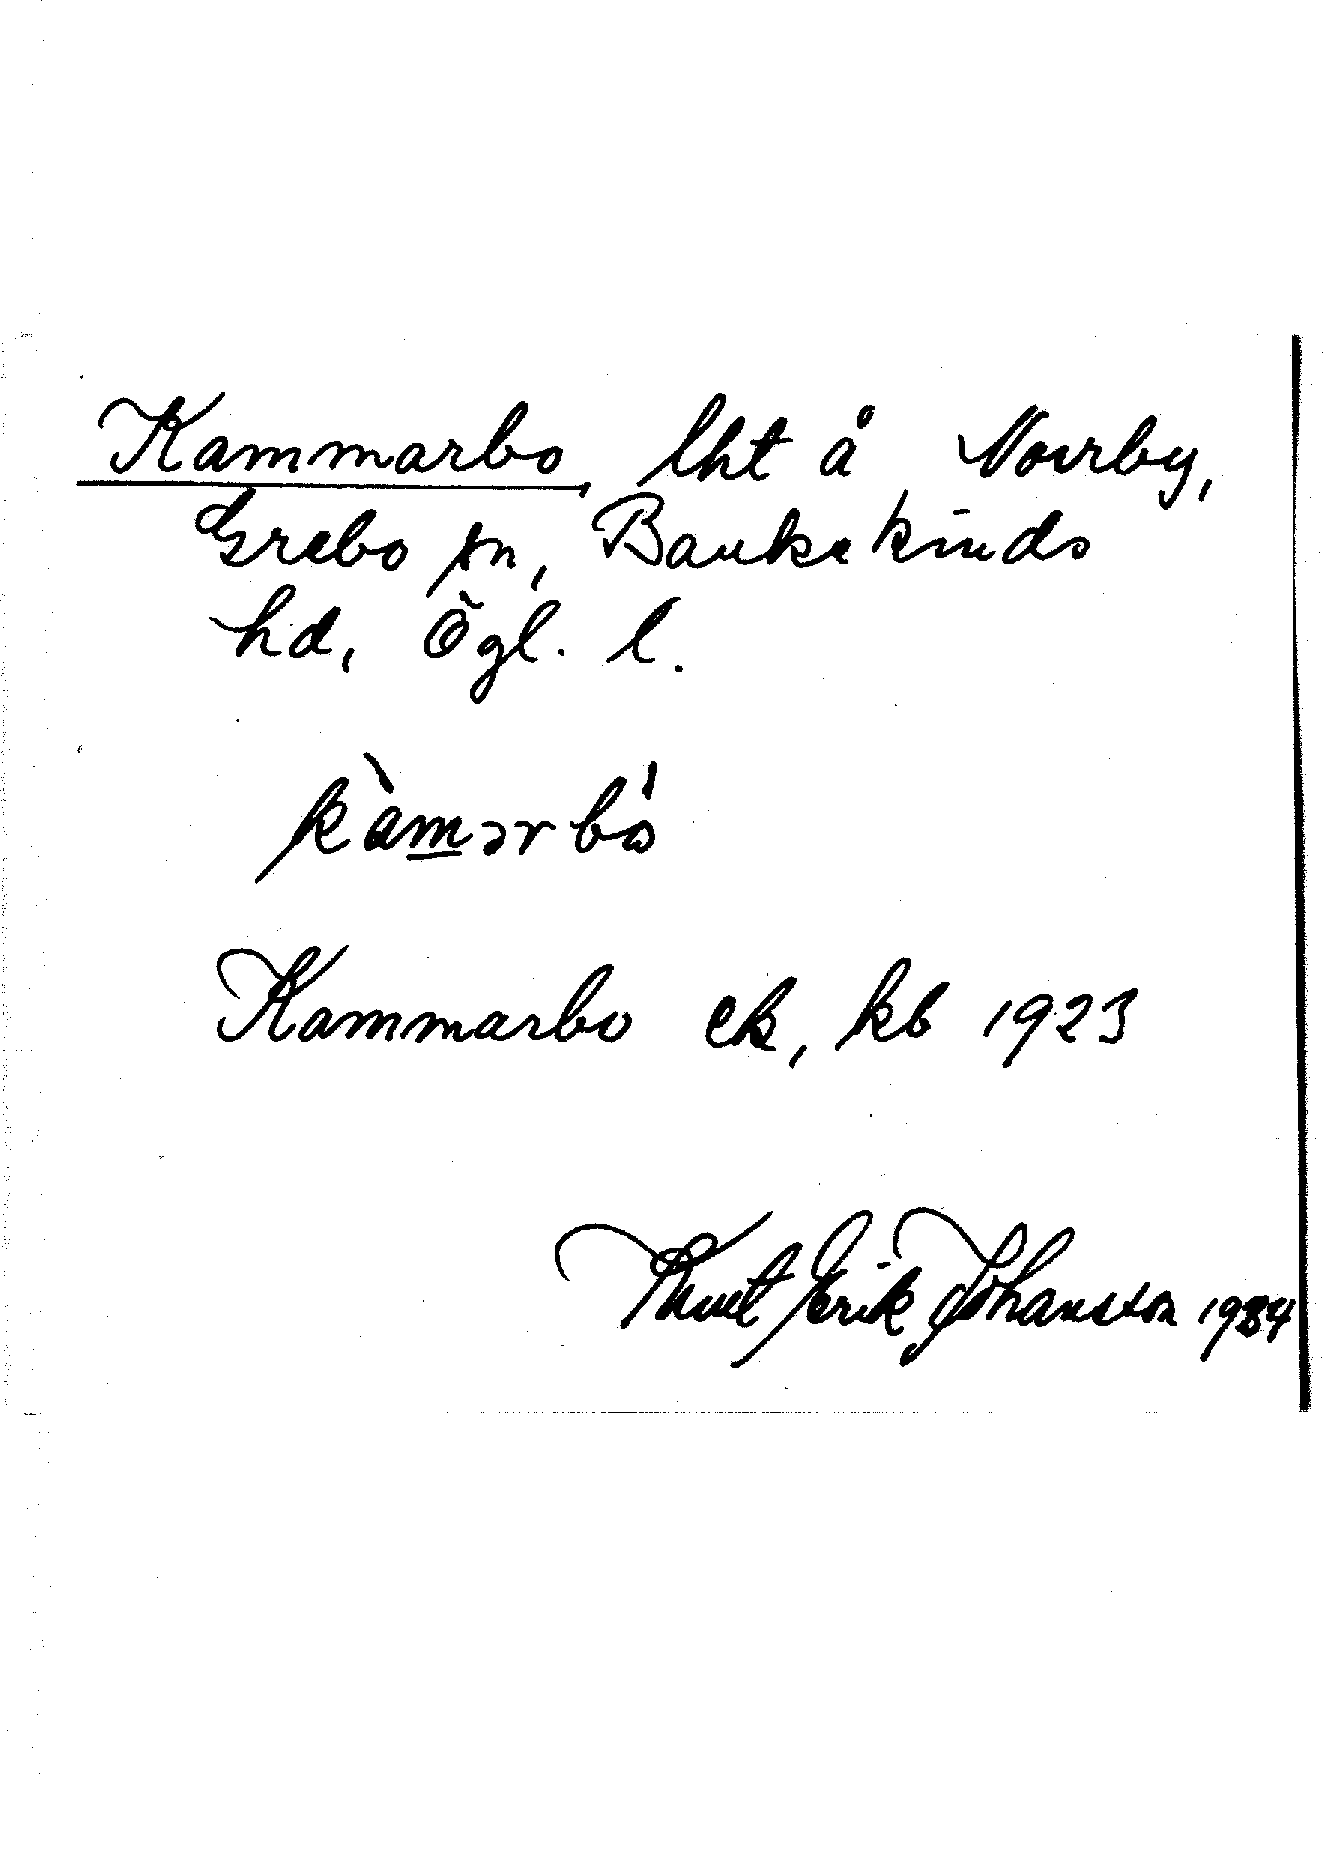 Kammarbo, lht å Norrby,
Grebo sn, Bankekinds
hd, Ögl. l.
kàmərbó
Kammarbo ek, kb 1923
Knut Erik Johansson 1934